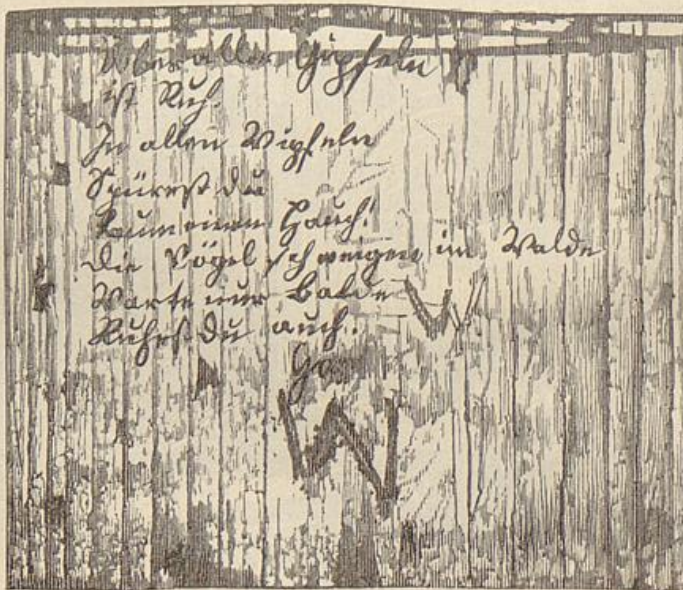 Über allen Gipfeln
ist Ruh.
In allen Wipfeln
Spürest du
kaum einen Hauch!
die Vögel schweigen im Walde
Warte nur balde W
Ruhest du auch.
W